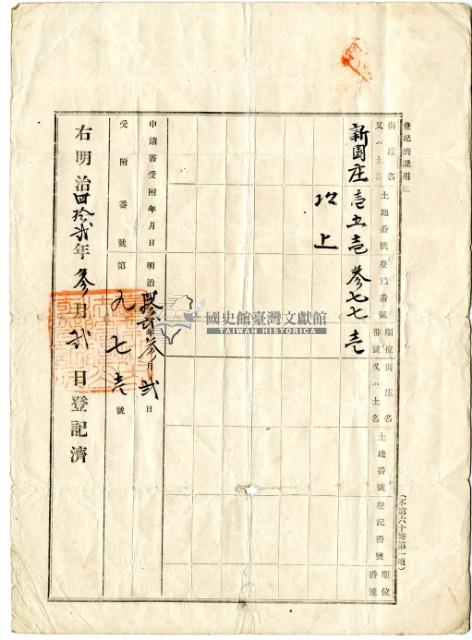 登記濟證用紙
街庄名又ハ土名 土地番號 登記番號 順位番號 街庄名又ハ土名 土地番號 登記番號 順位番號
新園庄 壱五壱 參七七 壱
以上
申請書受附年月日 明治四拾貳年參月貳日
受附番號 第九七壱號
右明治四拾貳年參月貳日登記濟
國史館臺灣文獻館
TAIWAN HISTORICA